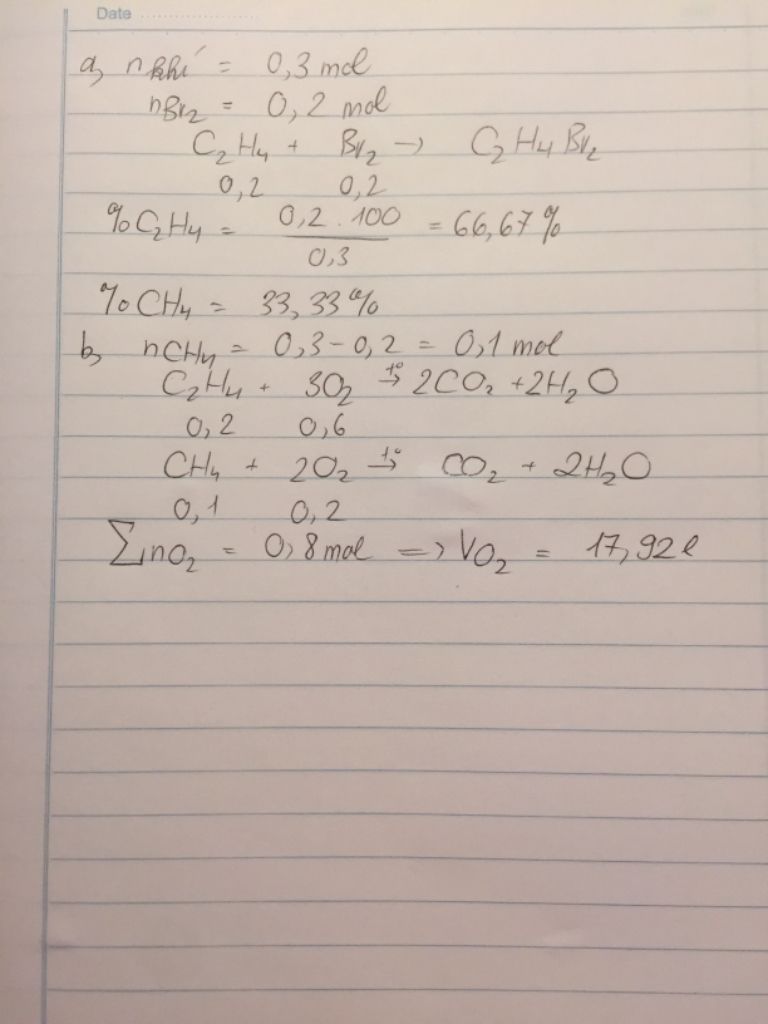 Date
a, n khí = 0,3 mol
nBr₂ = 0,2 mol
C₂H₄ + Br₂ → C₂H₄Br₂
0,2 0,2
%C₂H₄ = 0,2 . 100 / 0,3 = 66,67%
%CH₄ = 33,33%
b, nCH₄ = 0,3 - 0,2 = 0,1 mol
C₂H₄ + 3O₂ t°→ 2CO₂ + 2H₂O
0,2 0,6
CH₄ + 2O₂ t°→ CO₂ + 2H₂O
0,1 0,2
∑nO₂ = 0,8 mol => VO₂ = 17,92 l